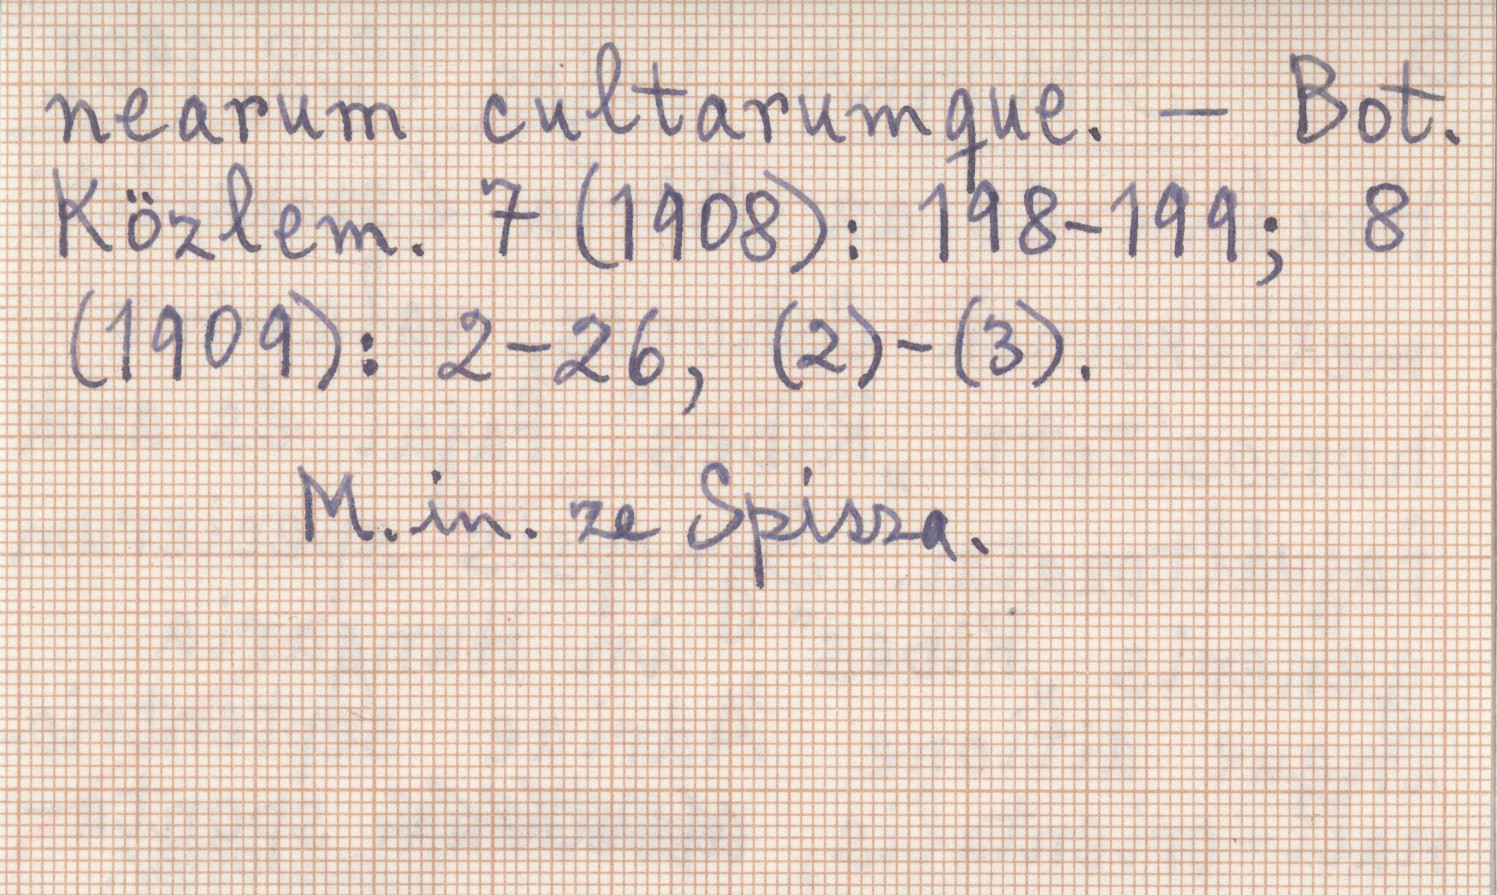 nearum cultarumque. — Bot.
Közlem. 7 (1908): 198-199; 8
(1909): 2-26, (2)-(3).
M. in. ze Spisza.